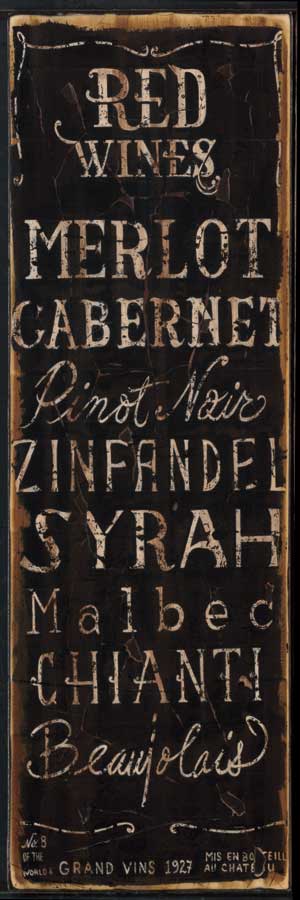 RED
WINES
MERLOT
CABERNET
Pinot Noir
ZINFANDEL
SYRAH
Malbec
CHIANTI
Beaujolais
No. 8
OF THE
WORLD'S
GRAND VINS 1927
MIS EN BOUTEILL
AU CHATEAU